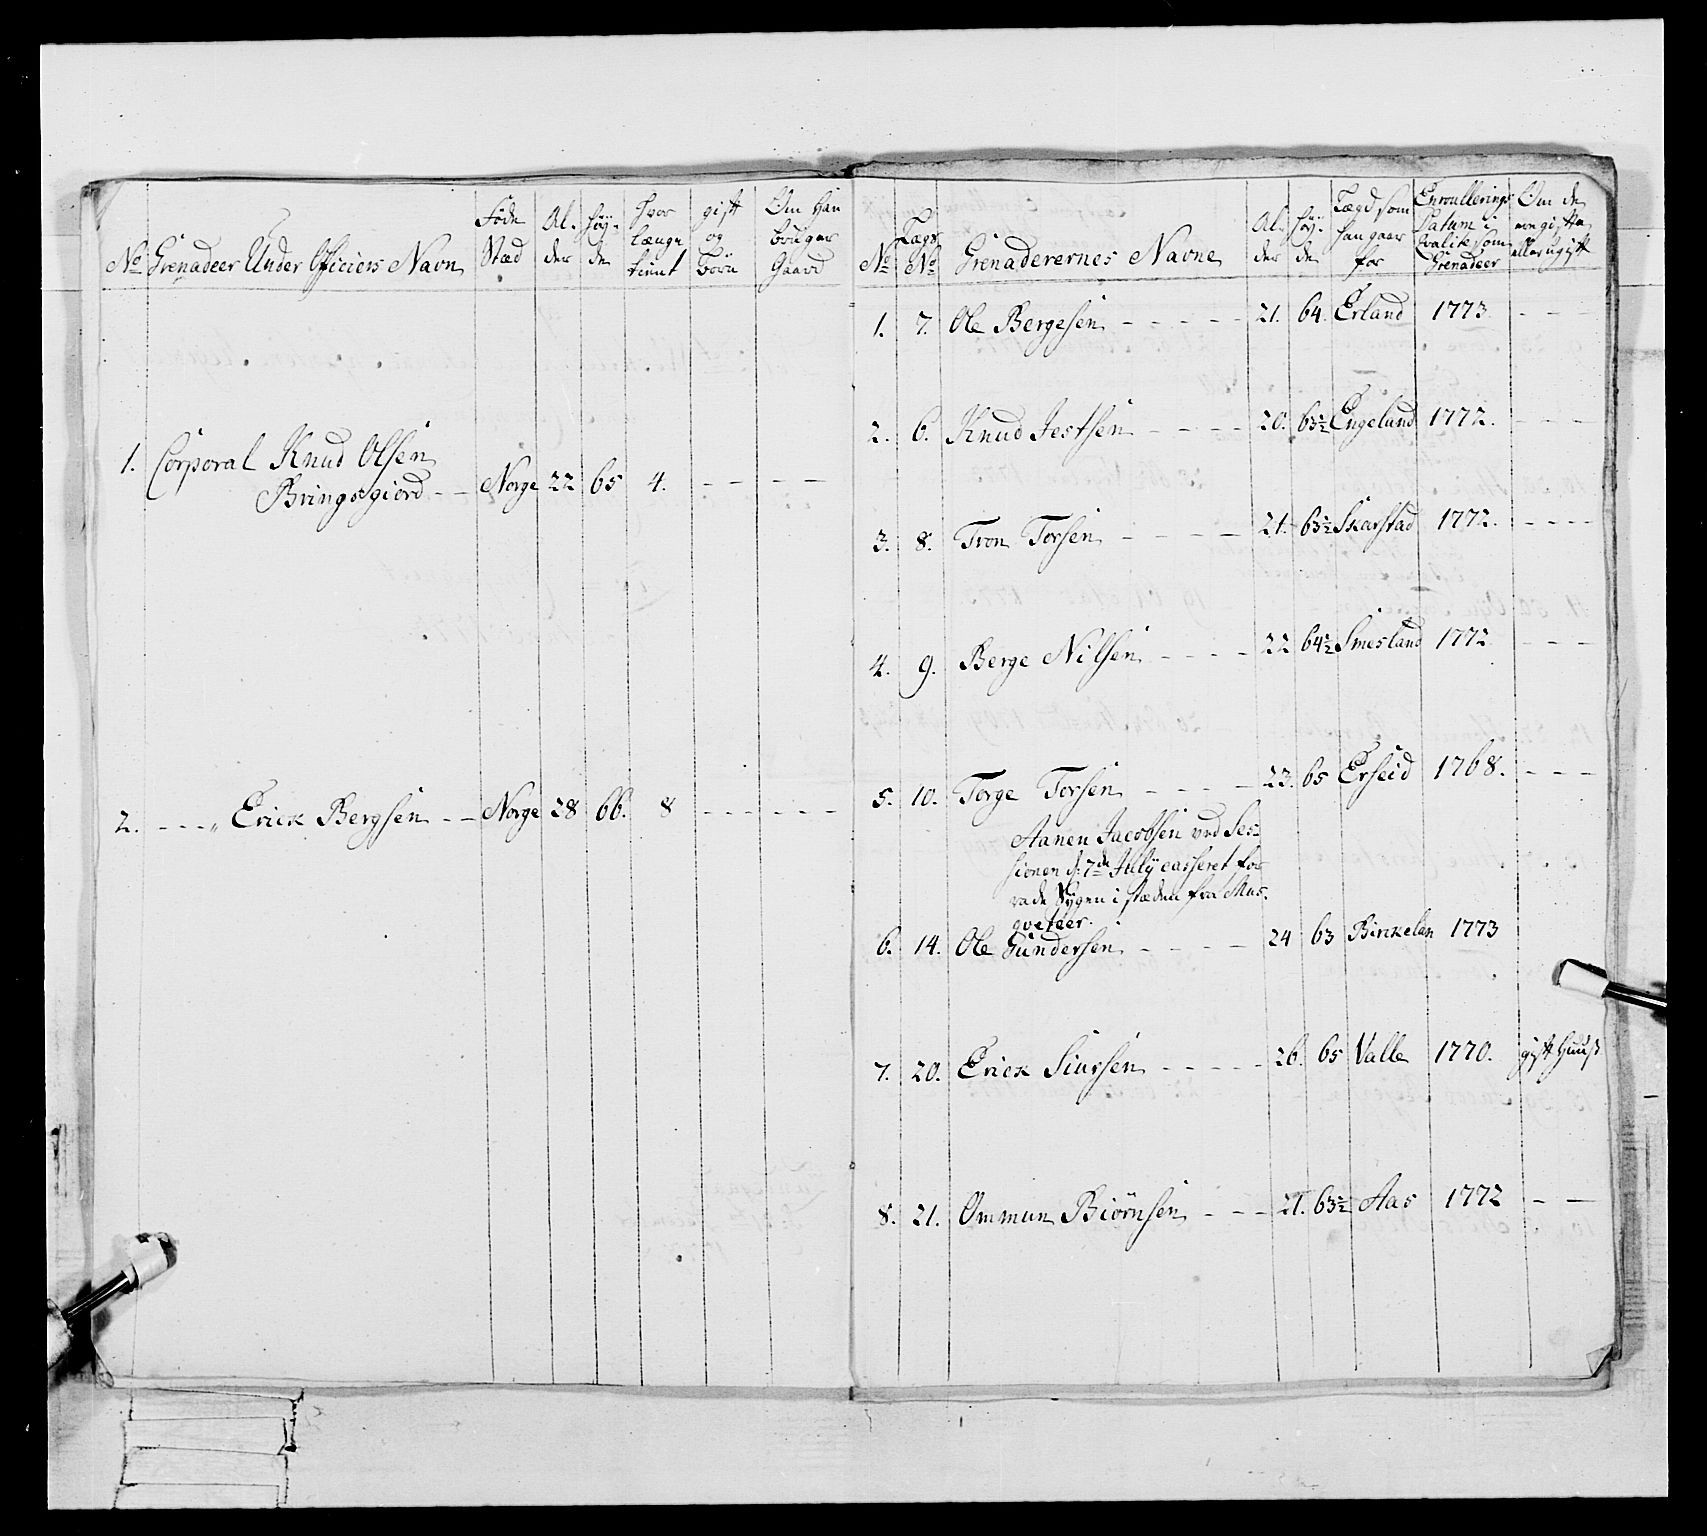 No Grenadeer Under Officiers Navn Føde Stæd Al- der Høy- de Hvor længe tient gift og Børn Om Han bruger Gaard
1. Corporal Knud Olsen
Bringsgierd - - Norge 22 65 4. - - - -
2. - - - „ Erick Bergsen - - Norge 28 66. 8 - - - - - -
No Lægs No Grenaderernes Navne Al- der Høy- de Lægd som han gaar for Enroullerings Datum i qvalite som Grenadeer Om de ere gifte eller ugift
1. 7. Ole Bergesen - - - - - 21. 64. Erland 1773 - - -
2. 6. Knud Jestsen - - - - 20. 63½ Engeland 1772. - - - -
3. 8. Tron Torsen - - - - - 21. 63½ Skarstad 1772. - - - -
4. 9. Berge Nilsen - - - - 22 64½ Smesland 1772 - - -
5. 10. Torge Torsen - - - - 23. 65 Erseid 1768. - - -
Aanen Jacobsen ved Ses-
sionen d: 7de Julÿ casseret for
rade Sygen i stæden fra Mus-
qveteer.
6. 14. Ole Gundersen - - - - 24 63 Birkelan 1773
7. 20. Erick Siursen - - - - - 26. 65 Valle 1770. gift Huus
8. 21. Ommun Biörnsen - - - 21. 63½ Aas 1772 - -